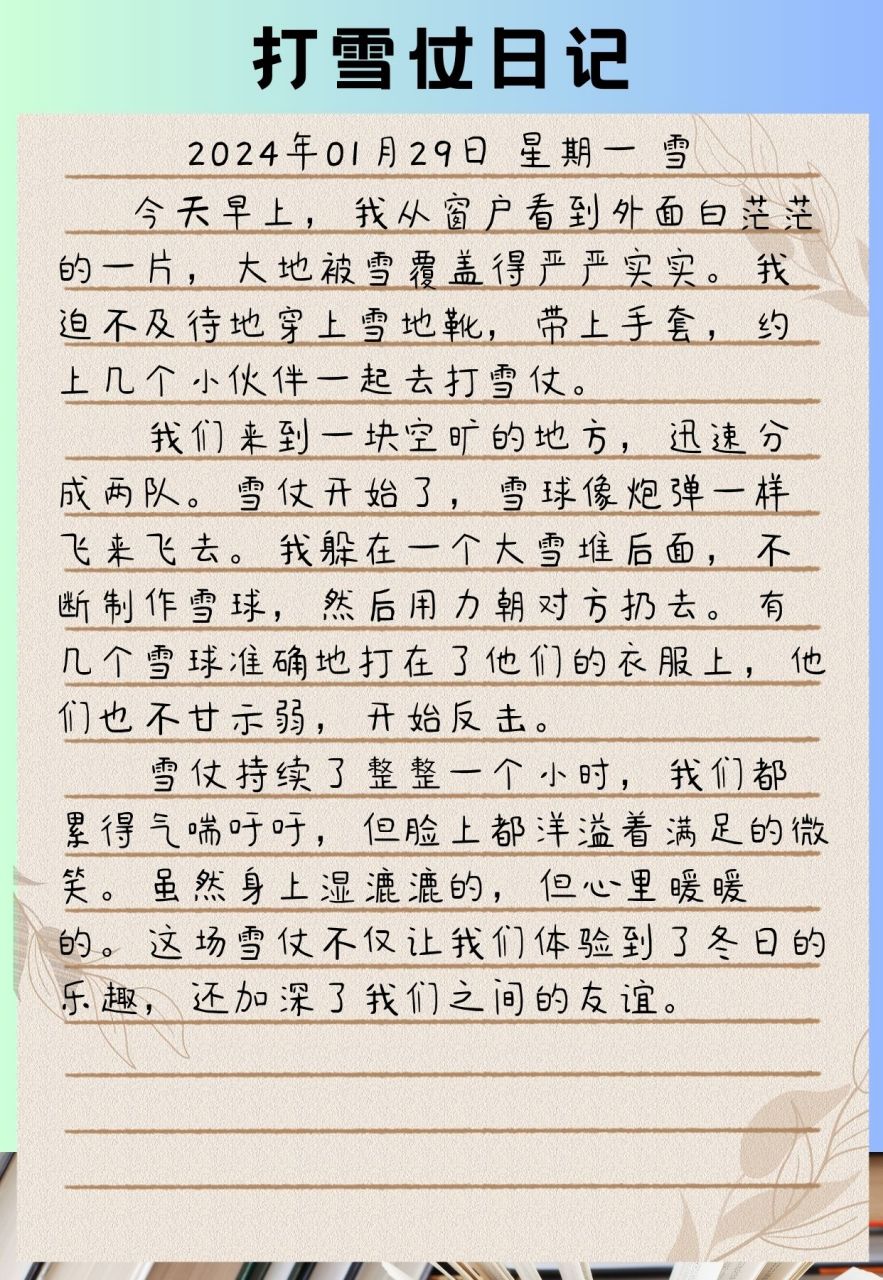 打雪仗日记
2024年01月29日 星期一 雪
今天早上，我从窗户看到外面白茫茫
的一片，大地被雪覆盖得严严实实。我
迫不及待地穿上雪地靴，带上手套，约
上几个小伙伴一起去打雪仗。
我们来到一块空旷的地方，迅速分
成两队。雪仗开始了，雪球像炮弹一样
飞来飞去。我躲在一个大雪堆后面，不
断制作雪球，然后用力朝对方扔去。有
几个雪球准确地打在了他们的衣服上，他
们也不甘示弱，开始反击。
雪仗持续了整整一个小时，我们都
累得气喘吁吁，但脸上都洋溢着满足的微
笑。虽然身上湿漉漉的，但心里暖暖
的。这场雪仗不仅让我们体验到了冬日的
乐趣，还加深了我们之间的友谊。